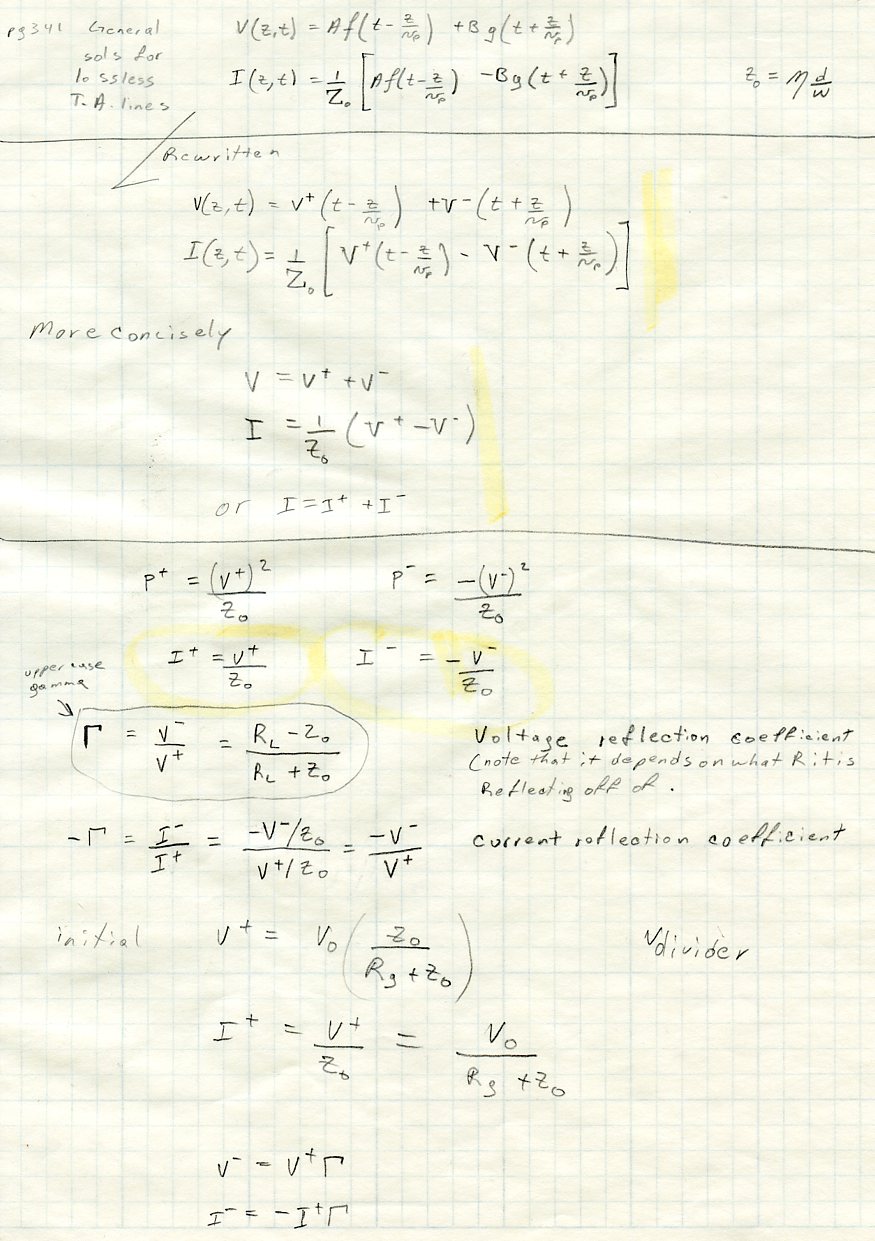 pg341 General sols for lossless T.A. lines
V(z,t) = Af(t - z/vₚ) + Bg(t + z/vₚ)
I(z,t) = 1/Z₀ [Af(t - z/vₚ) - Bg(t + z/vₚ)]
z₀ = η d/w
Rewritten
V(z,t) = V⁺(t - z/vₚ) + V⁻(t + z/vₚ)
I(z,t) = 1/Z₀ [V⁺(t - z/vₚ) - V⁻(t + z/vₚ)]
More concisely
V = V⁺ + V⁻
I = 1/Z₀ (V⁺ - V⁻)
or I = I⁺ + I⁻
P⁺ = (V⁺)²/Z₀ P⁻ = -(V⁻)²/Z₀
I⁺ = V⁺/Z₀ I⁻ = -V⁻/Z₀
uppercase
gamma
Γ = V⁻/V⁺ = (R_L - Z₀)/(R_L + Z₀) Voltage reflection coefficient
(note that it depends on what R it is
Reflecting off of.
-Γ = I⁻/I⁺ = (-V⁻/Z₀)/(V⁺/Z₀) = -V⁻/V⁺ current reflection coefficient
initial V⁺ = V₀ (Z₀/(Rg + Z₀)) Vdivider
I⁺ = V⁺/Z₀ = V₀/(Rg + Z₀)
V⁻ = V⁺Γ
I⁻ = -I⁺Γ